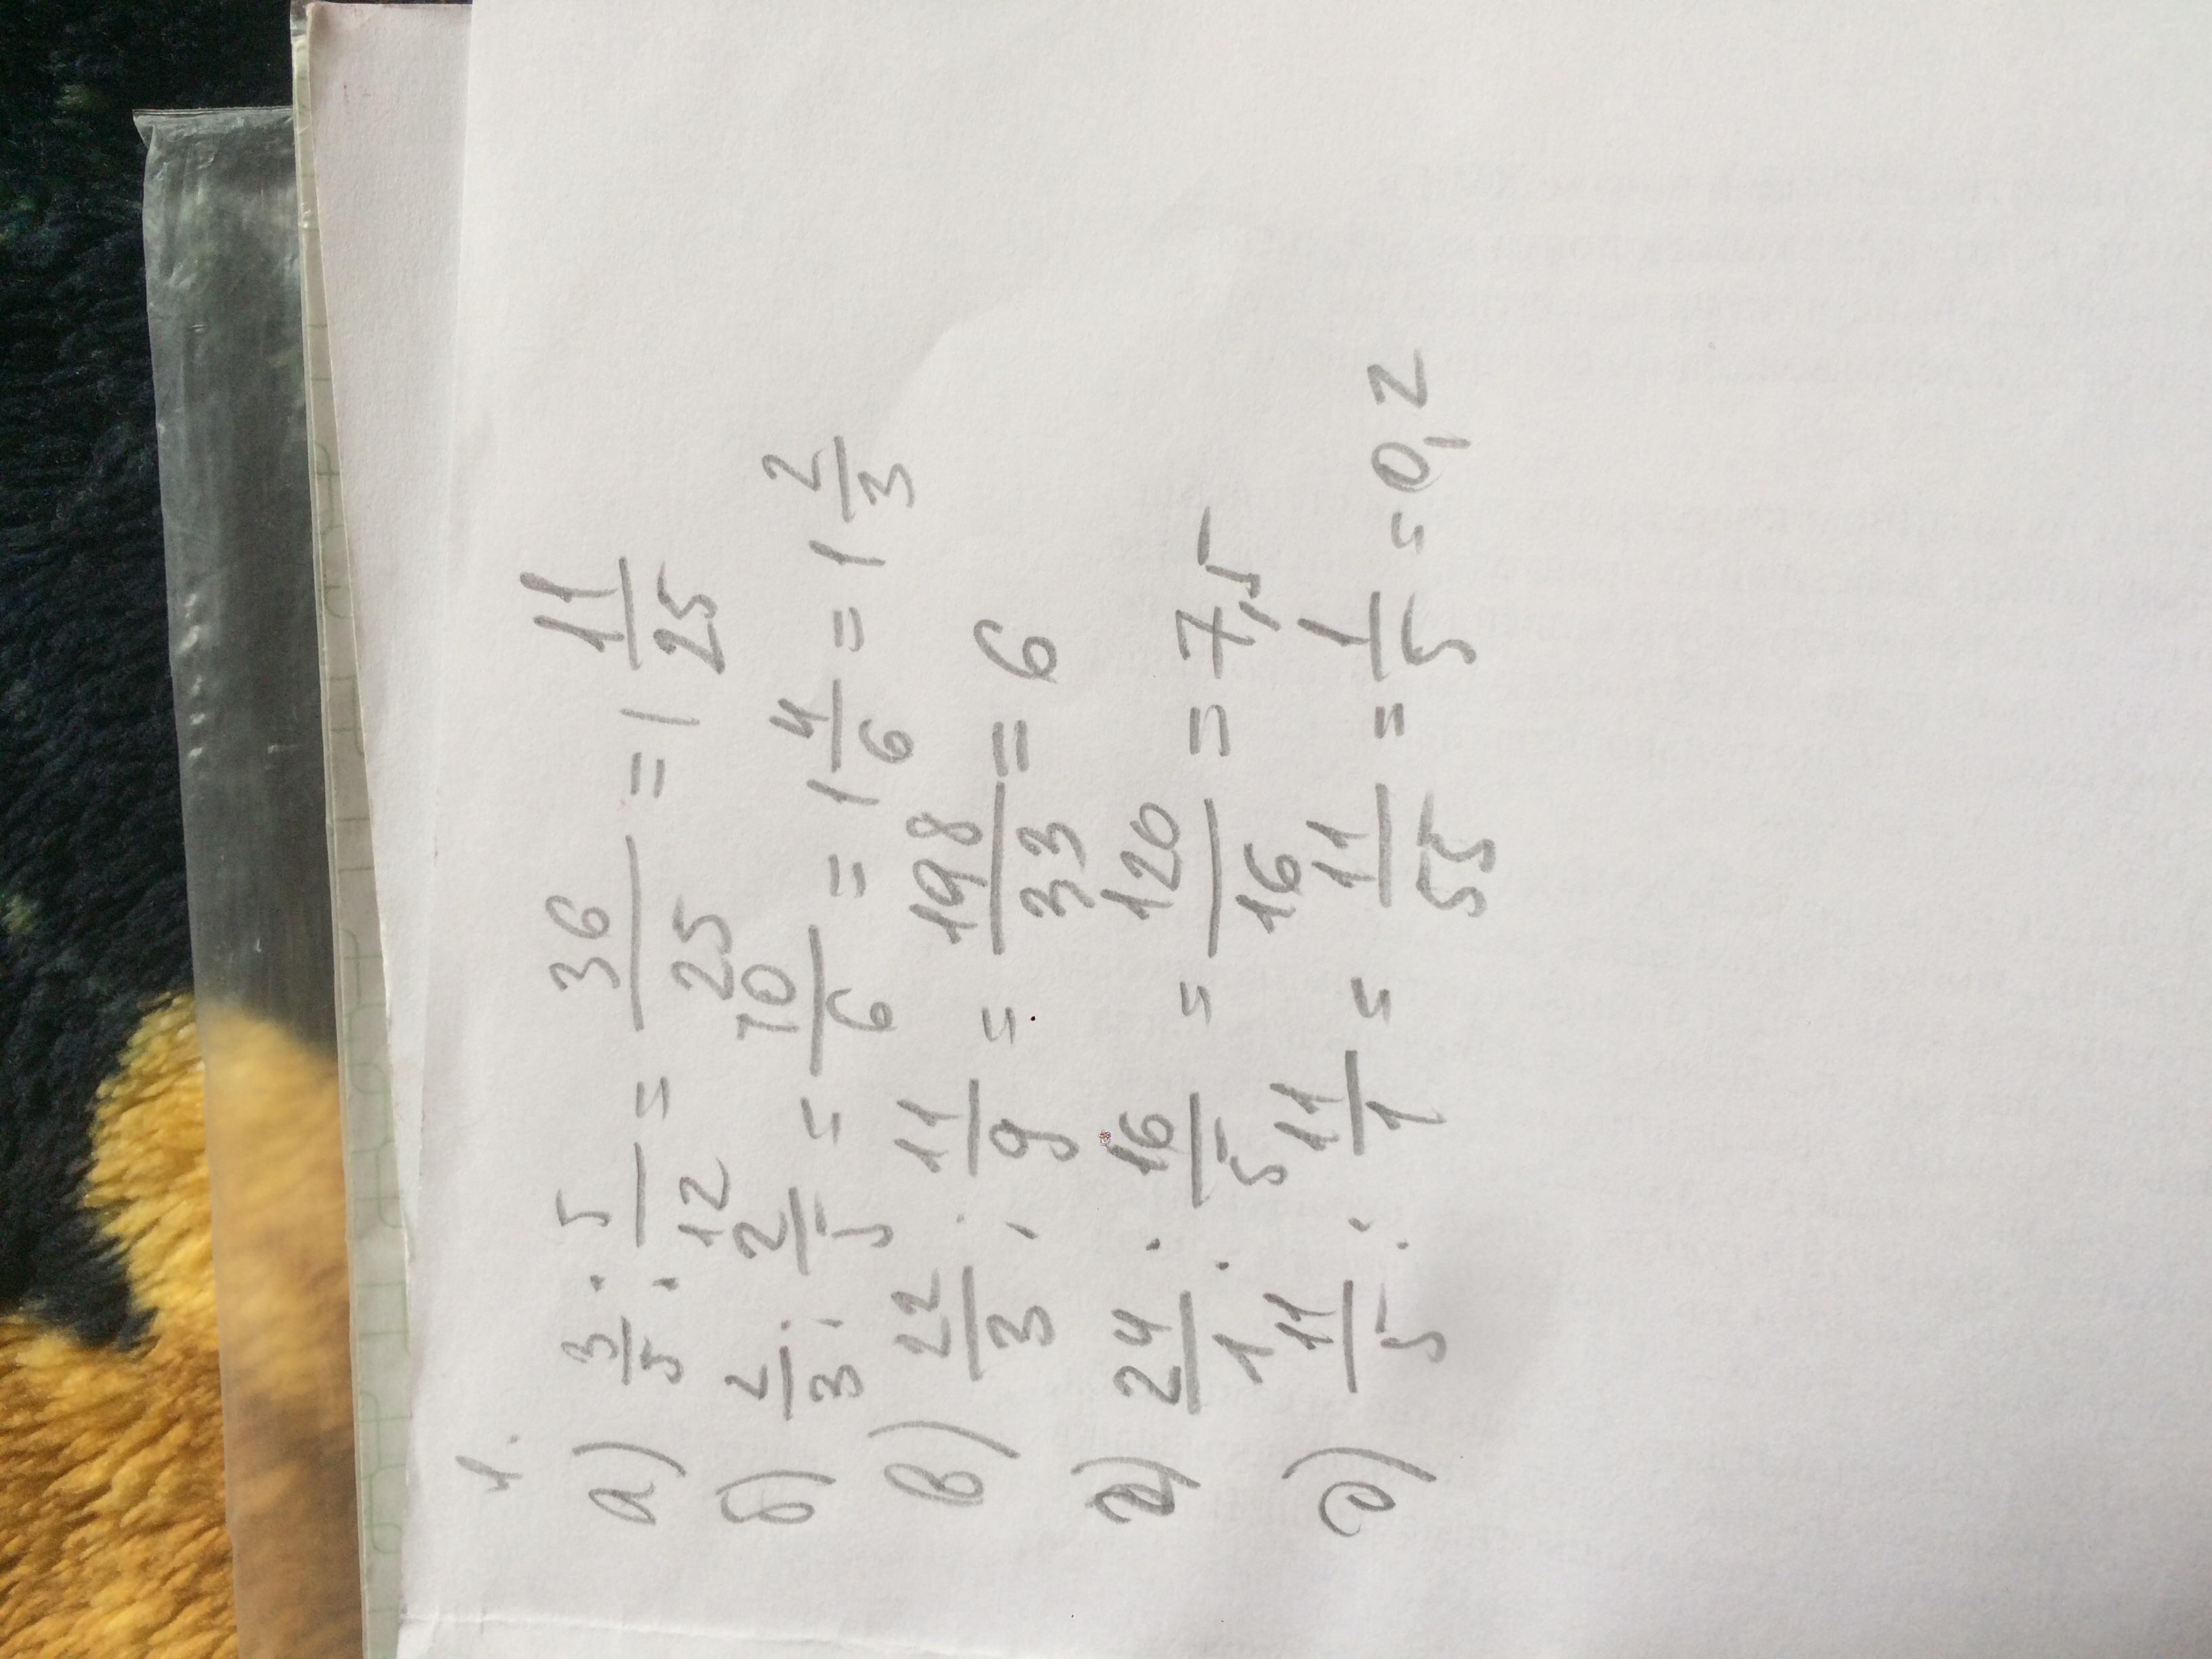 1.
а) 3/5 : 5/12 = 36/25 = 1 11/25
б) 2/3 : 2/5 = 10/6 = 1 4/6 = 1 2/3
в) 22/3 : 11/9 = 198/33 = 6
г) 24/1 : 16/5 = 120/16 = 7,5
д) 11/5 : 11/1 = 11/55 = 1/5 = 0,2